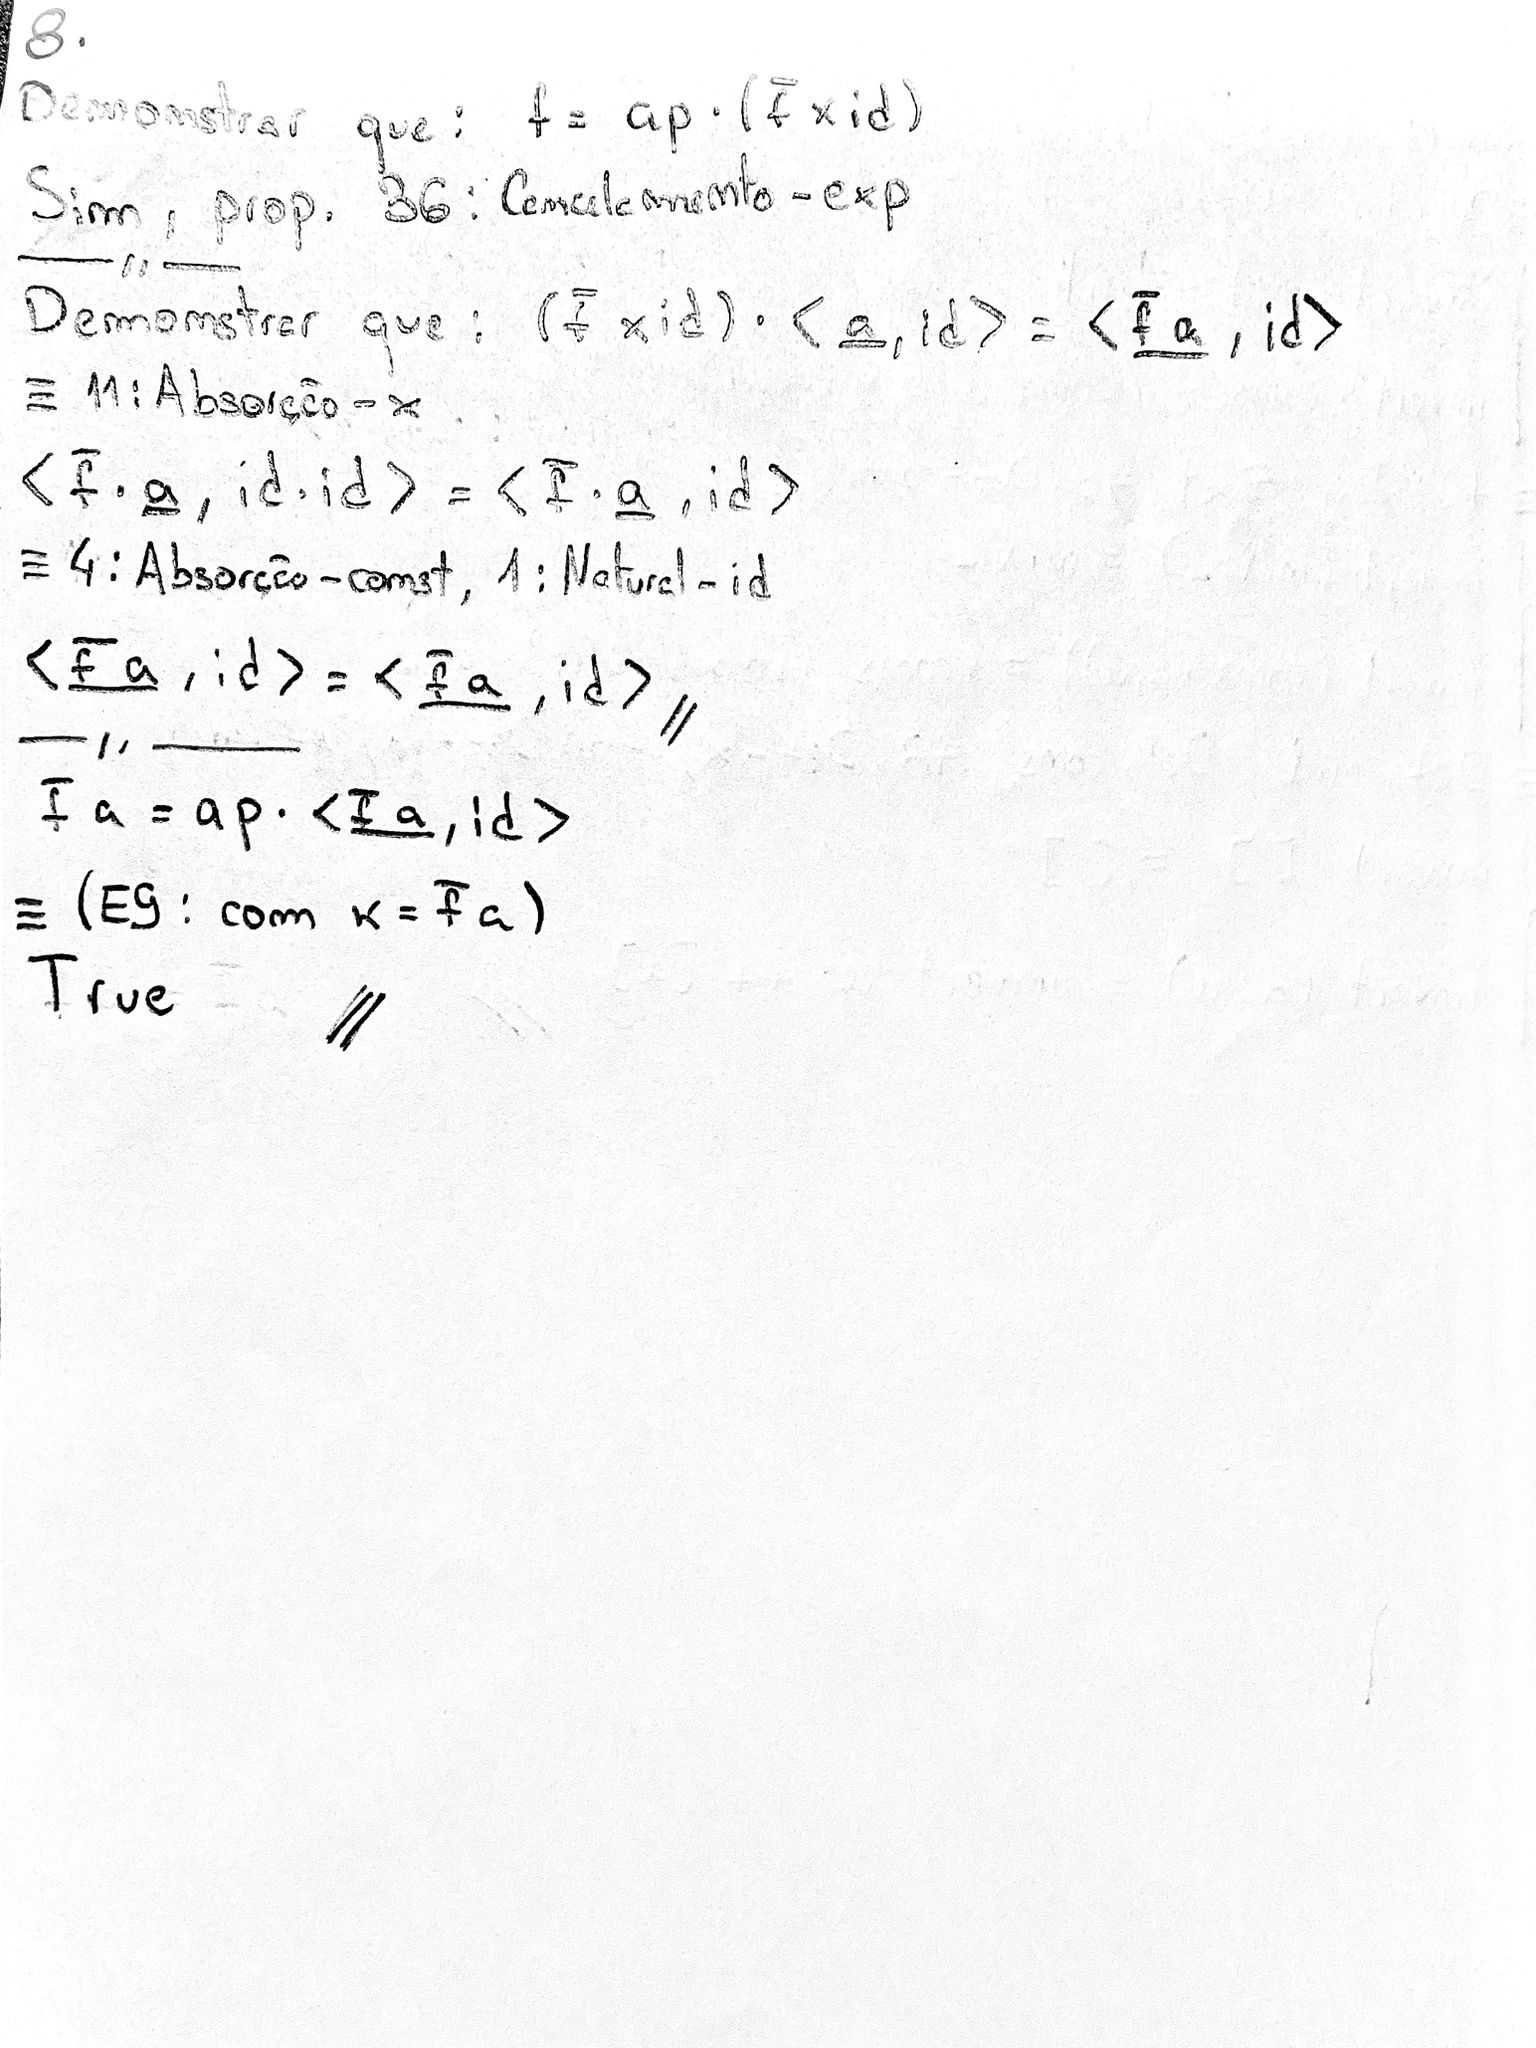 8.
Demonstrar que: f = ap · (f̅ x id)
Sim, prop. 36: Cancelamento-exp
—— ,, ——
Demonstrar que: (f̅ x id) · <a̲, id> = <f̲̅ ̲a̲, id>
≡ 11: Absorção-x
<f̅ · a̲, id · id> = <f̅ · a̲, id>
≡ 4: Absorção-const, 1: Natural-id
<f̲̅ ̲a̲, id> = <f̲̅ ̲a̲, id> //
—— ,, ——
f̅ a = ap · <f̲̅ ̲a̲, id>
≡ (E9: com k = f̅ a)
True //